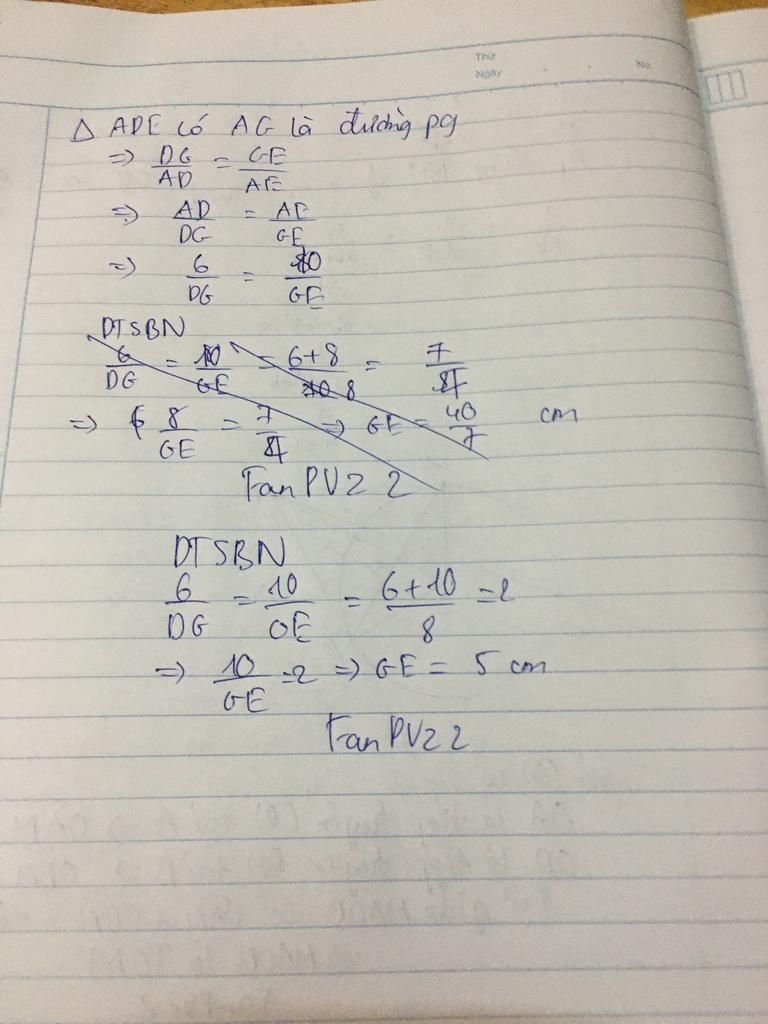 Thứ
Ngày
No.
Δ ADE có AG là đường pg
=> DG/AD = GE/AE
=> AD/DG = AE/GE
=> 6/DG = 10/GE
DTSBN
6/DG = 10/GE = 6+8/8 = 7/4
=> 8/GE = 7/4 => GE = 40/7 cm
FanPVZ 2
DTSBN
6/DG = 10/OE = 6+10/8 = 2
=> 10/GE = 2 => GE = 5 cm
FanPVZ 2